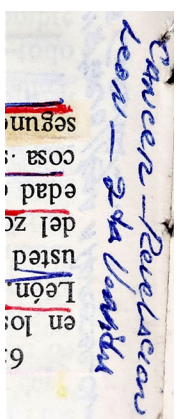 Cancer — Revelacion
Leon — 2da Venida
en los
León
usted
del zo
edad
cosa
segun